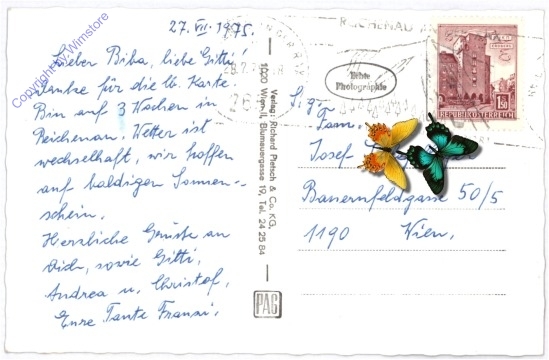 27. VII. 1975.
Lieber Biba, liebe Gitti!
Danke für die lb. Karte.
Bin auf 3 Wochen in
Reichenau, Wetter ist
wechselhaft, wir hoffen
auf baldigen Sonnen-
schein.
Herzliche Grüsse an
Dich, sowie Gitti,
Andrea u. Christof,
Eure Tante Franzi.
Copyright by Wimstore
Verlag: Richard Pietsch & Co. KG,
1020 Wien II, Blumauergasse 19, Tel. 24 25 84
PAG
REICHENAU
Echte
Photographie
1.50
REPUBLIK ÖSTERREICH
Fam.
Josef
Bauernfeldgasse 50/5
1190 Wien.